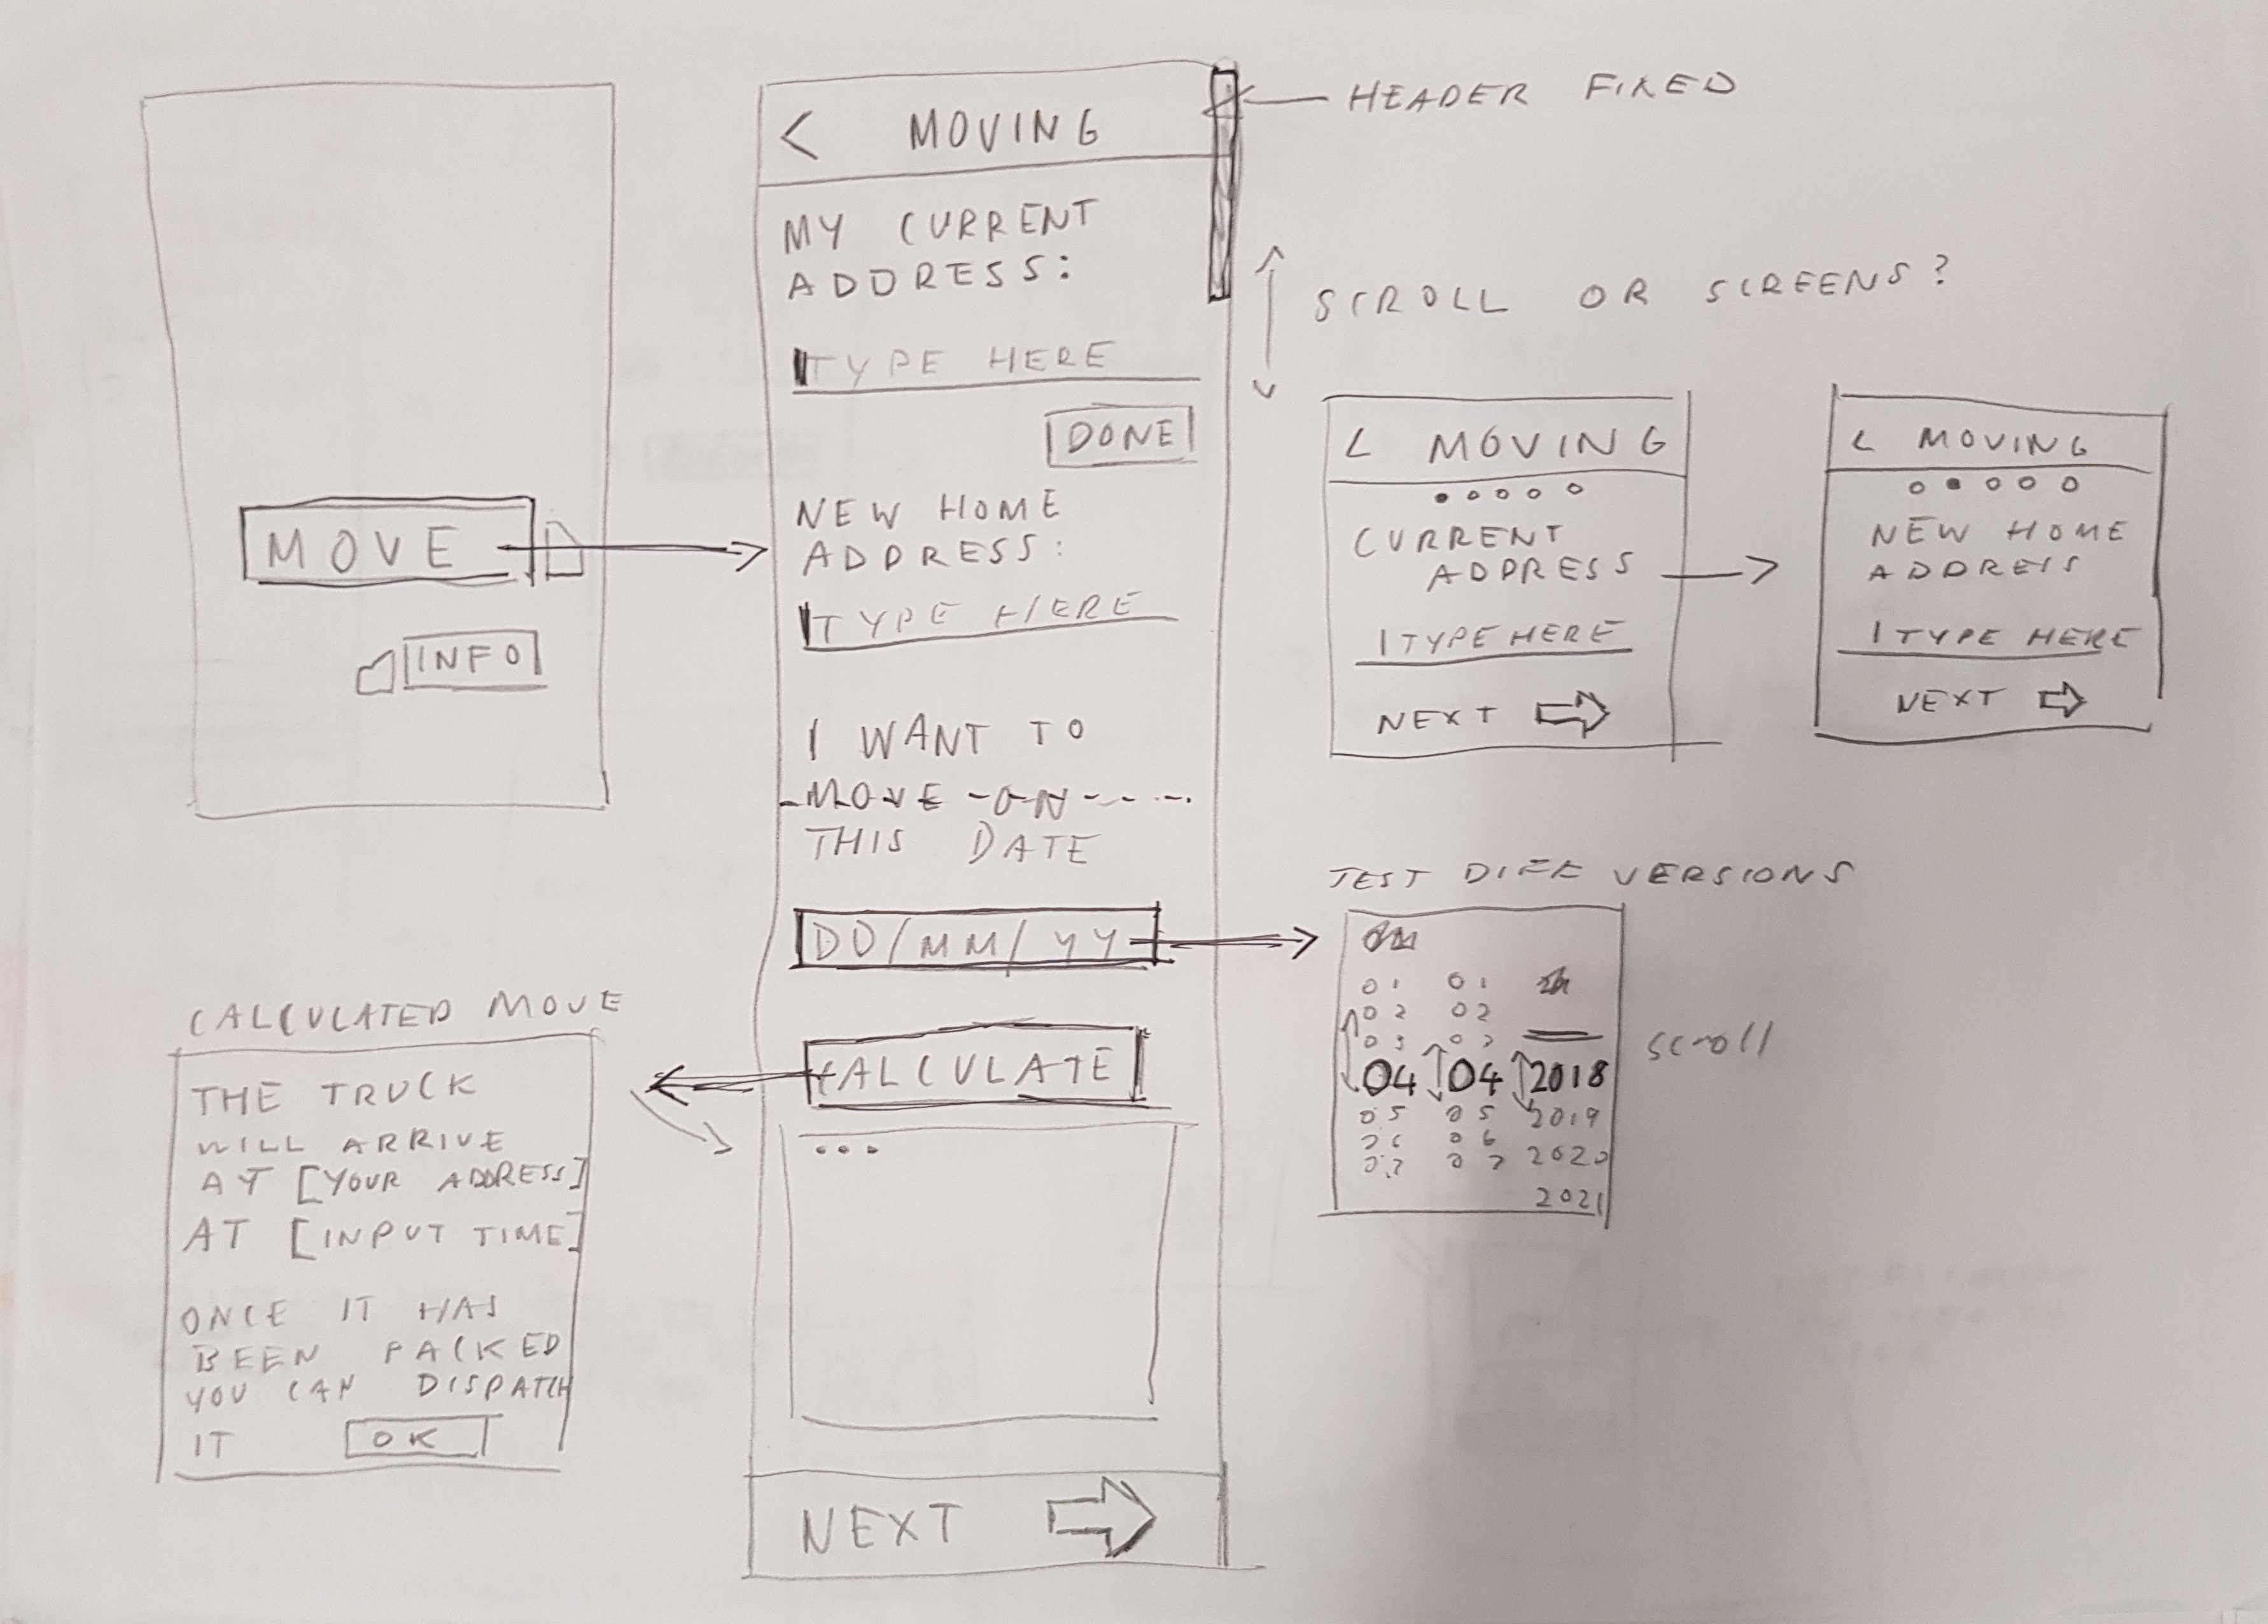 MOVE
INFO
< MOVING
MY CURRENT
ADDRESS:
TYPE HERE
DONE
NEW HOME
ADDRESS:
TYPE HERE
I WANT TO
MOVE ON
THIS DATE
DD/MM/YY
CALCULATE
...
NEXT
HEADER FIXED
SCROLL OR SCREENS?
< MOVING
CURRENT
ADDRESS
TYPE HERE
NEXT
< MOVING
NEW HOME
ADDRESS
TYPE HERE
NEXT
TEST DIFF VERSIONS
01 01
02 02
03 03
04 04 2018
05 05 2019
06 06 2020
07 07
2021
scroll
CALCULATED MOVE
THE TRUCK
WILL ARRIVE
AT [YOUR ADDRESS]
AT [INPUT TIME]
ONCE IT HAS
BEEN PACKED
YOU CAN DISPATCH
IT OK